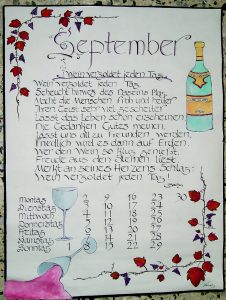 September
Wein vergoldet jeden Tag
Wein vergoldet jeden Tag,
Scheucht hinweg des Daseins Plag,
Macht die Menschen froh und heiter
Ihren Geist sehr viel gescheiter
Lässt das Leben schön erscheinen,
Die Gedanken Gutes meinen,
Lässt uns all zu Freunden werden,
Friedlich wird es dann auf Erden.
Wer den Wein so klug genießt,
Freude aus den Steinen liest,
Merkt an seines Herzens Schlag:
Wein vergoldet jeden Tag!
Montag 2 9 16 23 30
Dienstag 3 10 17 24
Mittwoch 4 11 18 25
Donnerstag 5 12 19 26
Freitag 6 13 20 27
Samstag 7 14 21 28
Sonntag 1 8 15 22 29